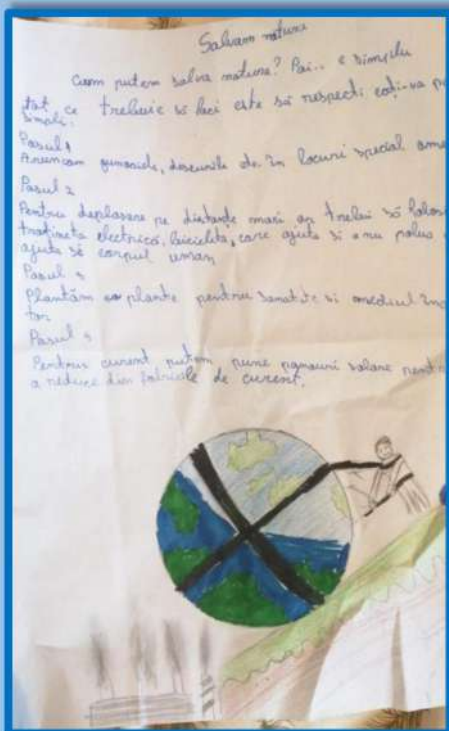 Salvăm natura
Cum putem salva natura? Păi... e simplu
tot ce trebuie să faci este să respecti
simpli:
Pasul 1
Aruncăm gunoaiele, deseurile etc în locuri special
Pasul 2
Pentru deplasare pe distanțe mari ar trebui să
trotineta electrică, bicicleta, care ajuta si a nu polua
ajuta să corpul uman
Pasul 3
Plantăm plante pentru sanatate si mediul
tor
Pasul 4
Pentru curent putem pune panouri solare
a reduce din fabricile de curent.